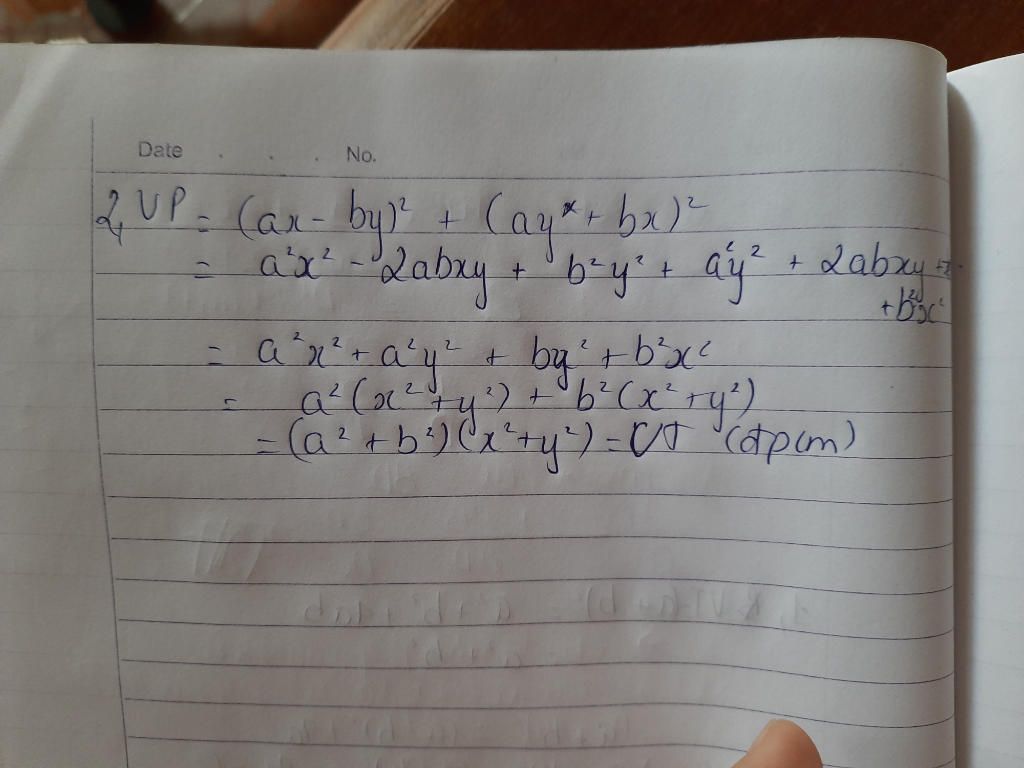 Date . . . No.
2, VP = (ax - by)² + (ay + bx)²
= a²x² - 2abxy + b²y² + a²y² + 2abxy +
+ b²x²
= a²x² + a²y² + by² + b²x²
= a²(x² + y²) + b²(x² + y²)
= (a² + b²)(x² + y²) = VT (đpcm)